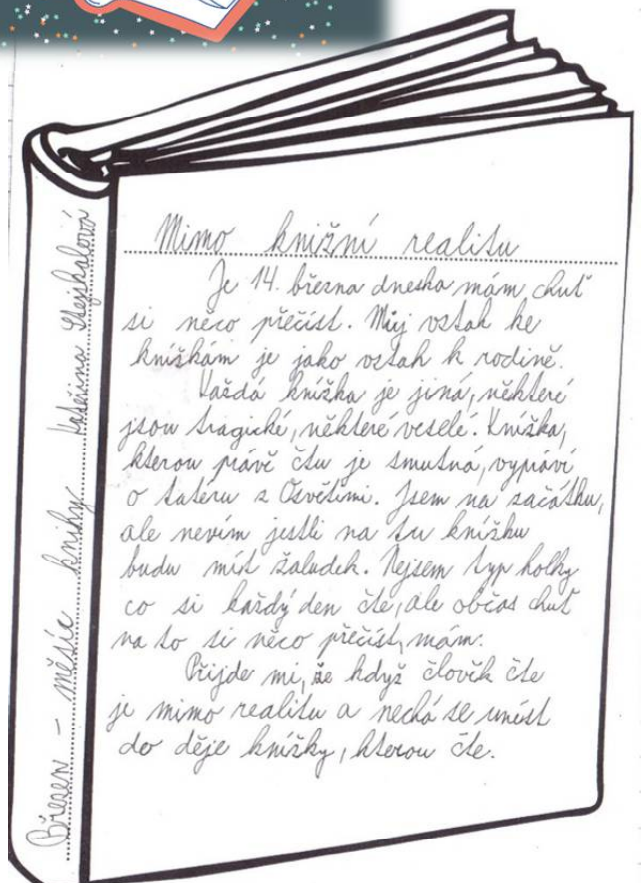 Mimo knižní realitu
Je 14. března dneska mám chuť
si něco přečíst. Můj vztah ke
knížkám je jako vztah k rodině.
Každá knížka je jiná, některé
jsou tragické, některé veselé. Knížka,
kterou právě čtu je smutná, vypráví
o tatéru z Osvětimi. Jsem na začátku,
ale nevím jestli na tu knížku
budu mít žaludek. Nejsem typ holky
co si každý den čte, ale občas chuť
na to si něco přečíst, mám.
Přijde mi, že když člověk čte
je mimo realitu a nechá se unést
do děje knížky, kterou čte.
Březen – měsíc knihy Kateřina Stejskalová